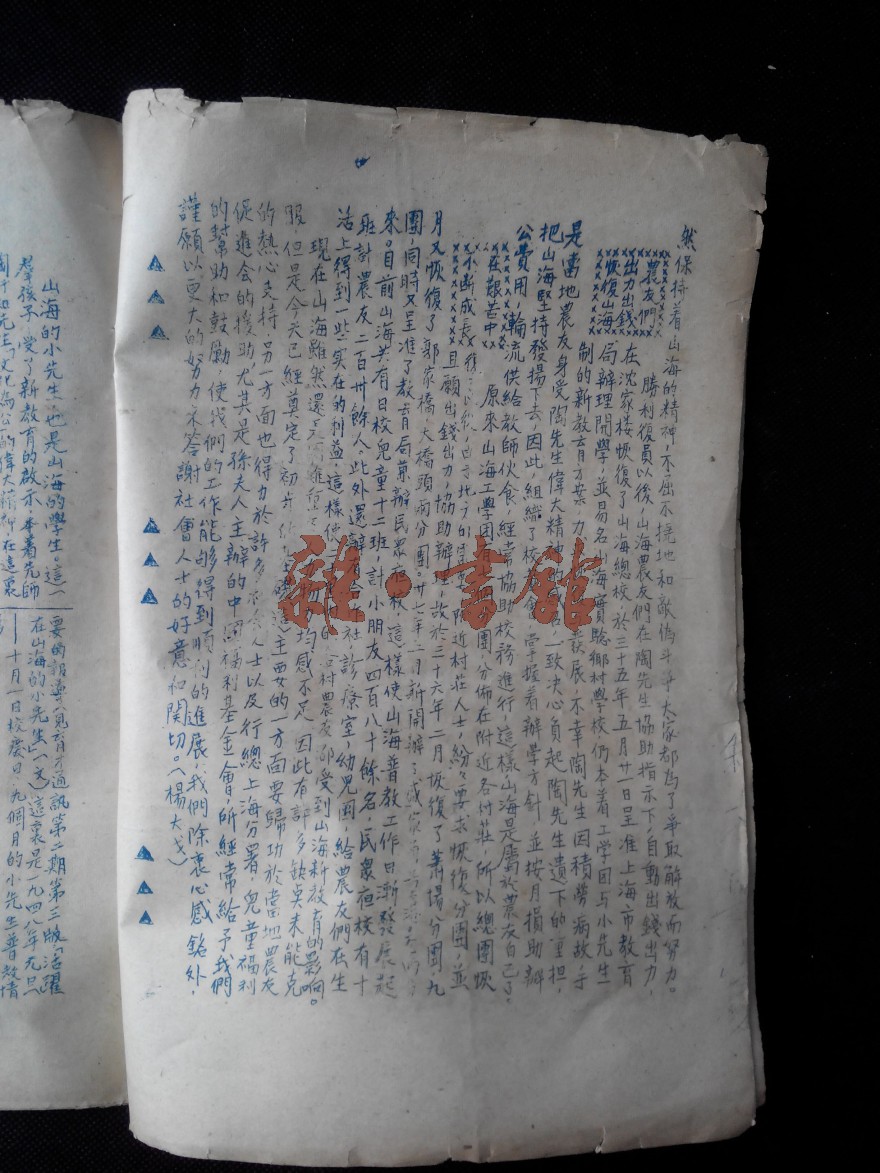 然保持着山海的精神，不屈不撓地和敵偽斗爭大家都為了爭取解放而努力。
農友們
出力出錢
恢復山海
勝利復員以後，山海農友們在陶先生協助指示下，自動出錢出力，
在沈家楼恢復了山海總校，於三十五年五月廿一日呈准上海市教育
局辦理開學，並易名山海實驗鄉村學校仍本着工學团与小先生
制的新教育方案
力
發展，不幸陶先生因積勞病故，于
是當地農友身受陶先生偉大精神
一致決心負起陶先生遺下的重担，
把山海堅持發揚下去，因此，組織了校
掌握着辦學方針，並按月捐助辦
公費用，輪流供給教師伙食，經常協助校務進行，這樣山海是屬於農友自己了。
在艱苦中
不斷成長
原來山海工學团有
團，分佈在附近各村莊，所以總團恢
復
附近村莊人士，紛々要求恢復分團，並
且願出錢出力，協助辦
故於三十六年二月恢復了蕭場分團，九
月又恢復了郭家橋，大橋頭兩分團。廿七年二月新開辦了
團，同時又呈准了教育局
辦民眾夜校，這樣使山海普教工作日漸發展起
來。目前山海共有日校兒童十二班，計小朋友四百八十餘名，民眾夜校有十
班計農友二百卅餘人。此外還辦有合作社，診療室，幼兒团，給農友們在生
活上得到一些实在的利益，這樣使
村農友都受到山海新教育的影响。
現在山海雖然還
均感不足，因此有許多缺点未能克
服，但是今天已經奠定了初步
主要的一方面要歸功於當地農友
的熱心支持，另一方面也得力於許多
人士以及行總上海分署，兒童福利
促進会的援助，尤其是孫夫人主辦的中國福利基金會，所經常給予我們
的幫助和鼓勵，使我們的工作能够得到順利的進展，我們除衷心感銘外，
謹願以更大的努力來答謝社會人士的好意和関切。（楊大戈）
山海的小先生，也是山海的學生。這一
羣孩子，受了新教育的啟示本着先師
陶行知先生「文化為公」的偉大精神在這裏
要的報導（見育才通訊第二期第三版「活躍
在山海的小先生」一文）這裏是一九四八年元旦
——十月一日校慶日，九個月的小先生普教情